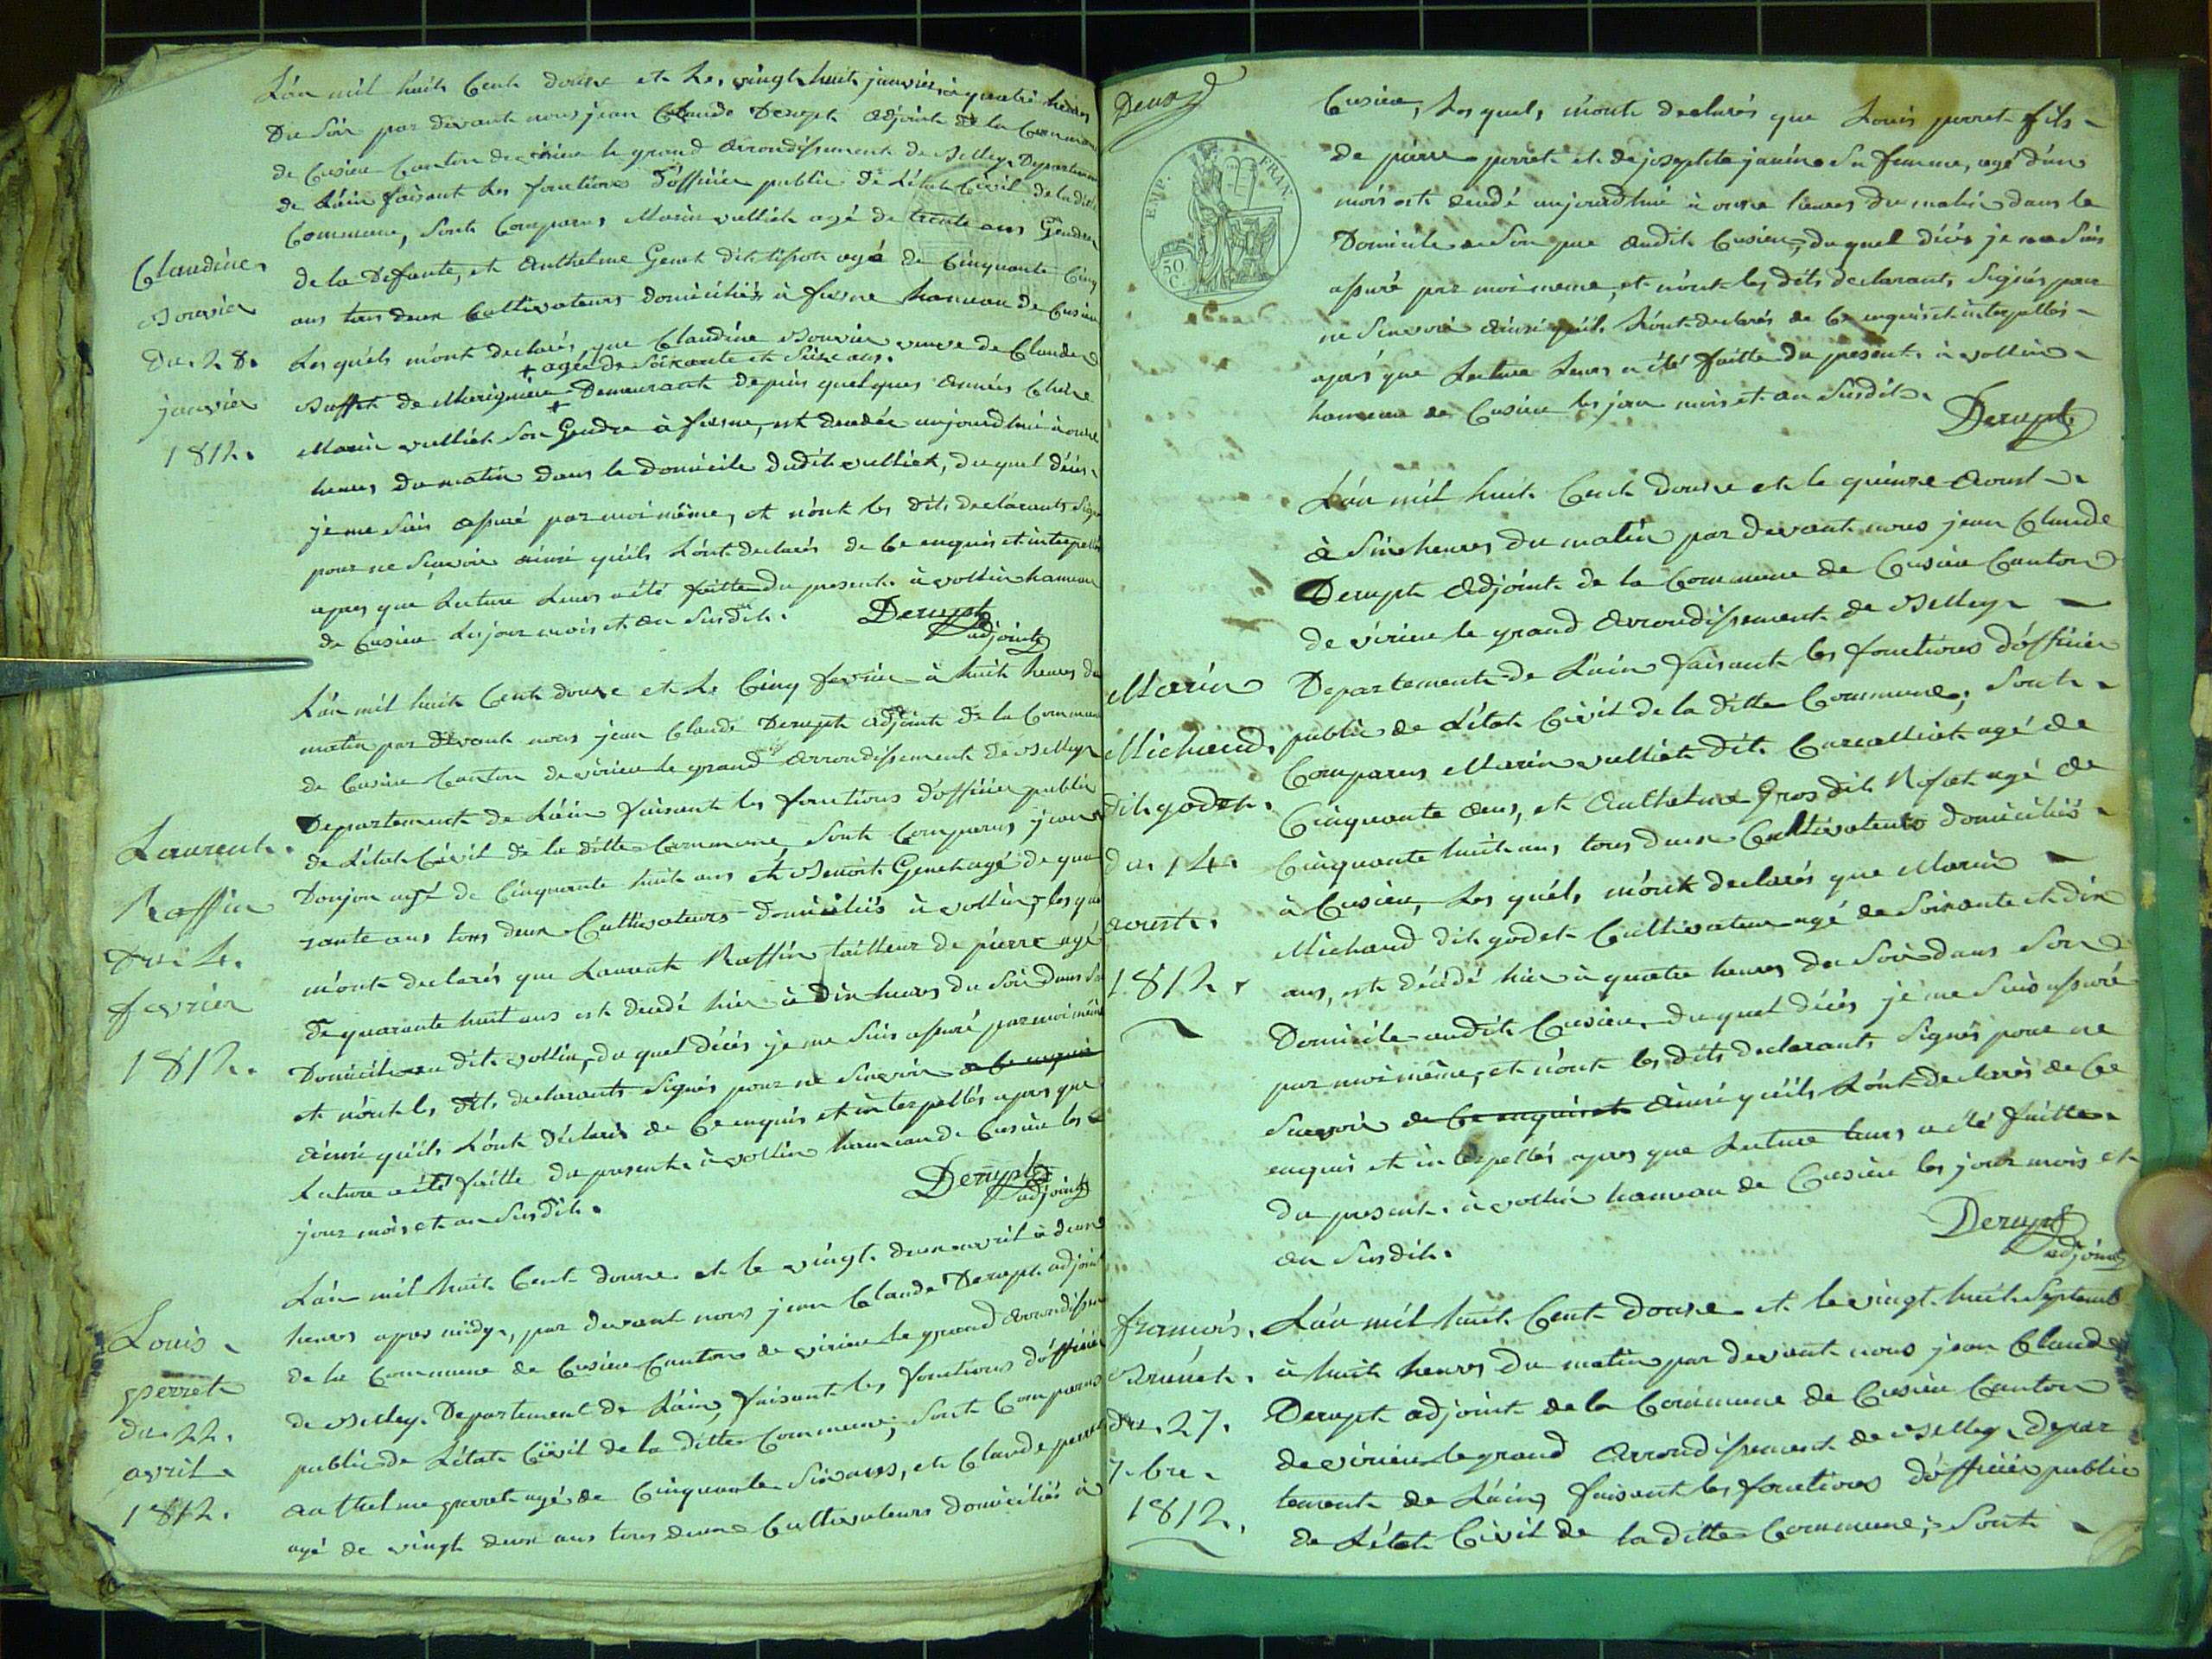 L'an mil huit Cent douze et Le vingt huit janvier à quatre heures
Du Soir par devant nous jean Claude Derupt Adjoint de la Commune
de Cusieu Canton de virieu le grand Arrondissement de Belley Departement
de L'ain faisant Les fonctions D'officier public De L'état Civil de la ditte
Commune, Sont Comparus Marin vulliet agé de trente ans Gendre
de la Défunte, et Anthelme Genet dit tissot agé de Cinquante Cinq
ans tous deux Cultivateurs domiciliés à hameau de Cusieu
Les quels m'ont declarés que Claudine Bouvier veuve de Claude
+ agée de Soixante et Seize ans.
Buffet de Demeurant depuis quelques Années Chez
Marin vulliet Son Gendre à est decedée aujourd'hui à onze
heures du matin Dans le Domicile dudit vulliet, du quel décès
je me Suis assuré par moi même, et n'ont les dits declarants Signés
pour ne Scavoir ainsi qu'ils L'ont declarés de Ce enquis et interpellés
apres que Lecture Leurs a été faitte du present à vollin hameau
de Cusieu Les jour mois et an Susdit.
Derupt
adjoint
Claudine
Bouvier
du 28.
janvier
1812.
L'an mil huit Cent douze et Le Cinq fevrier à huit heures du
matin par devant nous jean Claude Derupt adjoint de la Commune
de Cusieu Canton de virieu le grand Arrondissement de Belley
Departement de L'ain faisant les fonctions d'officier public
de L'état Civil de la ditte Commune, Sont Comparus jean
Donjon agé de Cinquante huit ans et Benoit Genet agé de qua
rante ans tous deux Cultivateurs domiciliés à vollin, les quels
m'ont declarés que Laurent Raffin tailleur de pierre agé
de quarante huit ans est decedé hier à Dix heures du Soir dans Son
Domicile au dit vollin, du quel décès je me Suis assuré par moi même
et n'ont les dits declarants Signés pour ne Scavoir de Ce enquis
ainsi qu'ils L'ont déclarés de Ce enquis et interpellés apres que
Lecture a été faitte du present à vollin hameau de Cusieu les
jour mois et an Susdit.
Derupt
adjoint
Laurent
Raffin
Du 4.
fevrier
1812.
L'an mil huit Cent douze et le vingt deux avril à deux
heures apres midy, par devant nous jean Claude Derupt adjoint
de la Commune de Cusieu Canton de virieu le grand Arrondissement
de Belley Departement de L'ain, faisant les fonctions d'officier
public de L'état Civil de la ditte Commune, Sont Comparus
Anthelme perret agé de Cinquante Six ans, et Claude perret
agé de vingt deux ans tous deux Cultivateurs domiciliés à
Louis
perret
du 22.
avril
1812.
Deux
EMP. FRAN.
50
C.
Cusieu, Les quels m'ont declarés que Louis perret fils
de pierre perret et de josephte janin Sa femme, agé d'un
mois est decedé aujourd'hui à onze heures du matin dans le
Domicile de Son pere audit Cusieu, du quel décès je me Suis
assuré par moi meme, et n'ont les dits declarants Signés pour
ne Scavoir ainsi qu'ils L'ont declarés de Ce enquis et interpellés
après que Lecture Leurs a été faitte du present à vollin
hameau de Cusieu les jour mois et an Susdit.
Derupt
L'an mil huit Cent douze et le quinze Aoust
à Six heures du matin par devant nous jean Claude
Derupt Adjoint de la Commune de Cusieu Canton
de virieu le grand Arrondissement de Belley
Departement de L'ain faisant les fonctions d'officier
public de L'état Civil de la ditte Commune, Sont
Comparus Marin vulliet dit agé de
Cinquante Ans, et Anthelme Gros dit agé de
Cinquante huit ans, tous deux Cultivateurs domiciliés
à Cusieu, Les quels m'ont declarés que Marin
Michaud dit godet Cultivateur agé de Soixante et dix
ans, est décédé hier à quatre heures du Soir dans Son
Domicile audit Cusieu, du quel décès je me Suis assuré
par moi même, et n'ont les dits declarants Signés pour ne
Scavoir de Ce enquis et ainsi qu'ils L'ont declarés de Ce
enquis et interpellés apres que Lecture Leurs a été faitte
du present à vollin hameau de Cusieu les jour mois et
an Susdit.
Derupt
adjoint
Marin
Michaud
dit godet.
du 14.
aoust.
1812.
L'an mil huit Cent douze et le vingt huit Septemb
à huit heures du matin par devant nous jean Claude
Derupt adjoint de la Commune de Cusieu Canton
de virieu le grand Arrondissement de Belley Depar
tement de L'ain, faisant les fonctions d'officier public
de L'état Civil de la ditte Commune; Sont
francois
Brunet.
du 27.
7.bre
1812.